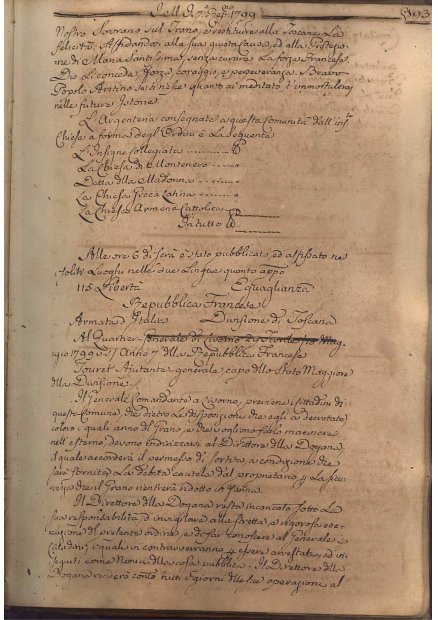 1799
nostro Sovrano sul Trono, e restituire alla Toscana la
felicità. Affidando alla sua giusta Causa, ed alla Protezio-
ne di Maria Santissima, senza curare la forza Francese.
Dio li conceda, forza, coraggio, e perseveranza. Bravo
Popolo Aretino se ti riesce quanto ai meditato t'immortalerai
nelle future Istorie.
L'Argenteria consegnata a questa Comunità dall'inf.
Chiese a forma degl'Ordini è la seguente
L'Insigne Collegiata
La Chiesa di Montenero
Detta della Madonna
La Chiesa Greca Latina
La Chiesa Armena Cattolica
In tutto
Alle ore 6 di sera è stato pubblicato, ed affissato ne
soliti Luoghi nelle due Lingue quanto app.
115 Libertà Eguaglianza
Repubblica Francese
Armata d'Italia Divisione di Toscana
Al Quartier Generale di Livorno
gio 1799 Anno 7 della Repubblica Francese
Touret Ajutante generale capo dello Stato Maggiore
della Divisione
Il Generale Comandante a Livorno, previene i Cittadini di
questa Comune, che dietro le disposizioni che egli a decretato
coloro i quali anno del Grano, e che vogliono farlo macinare
nell'esterno, devono indirizzarsi al Direttore della Dogana
il quale accorderà il permesso di sortita, a condizione che
sarà fornita la debita cautela dal proprietario per la sicu-
rezza che il Grano rientrerà ridotto in farina.
Il Direttore della Dogana resta incaricato sotto la
sua responsabilità d'invigilare alla stretta, e rigorosa ese-
cuzione del presente ordine, e di far conoscere al Generale i
Cittadini i quali vi contravverranno per essere arrestati, ed in-
seguiti come Nemici della cosa pubblica. Il Direttore della
Dogana renderà conto tutti i giorni delle sue operazioni al